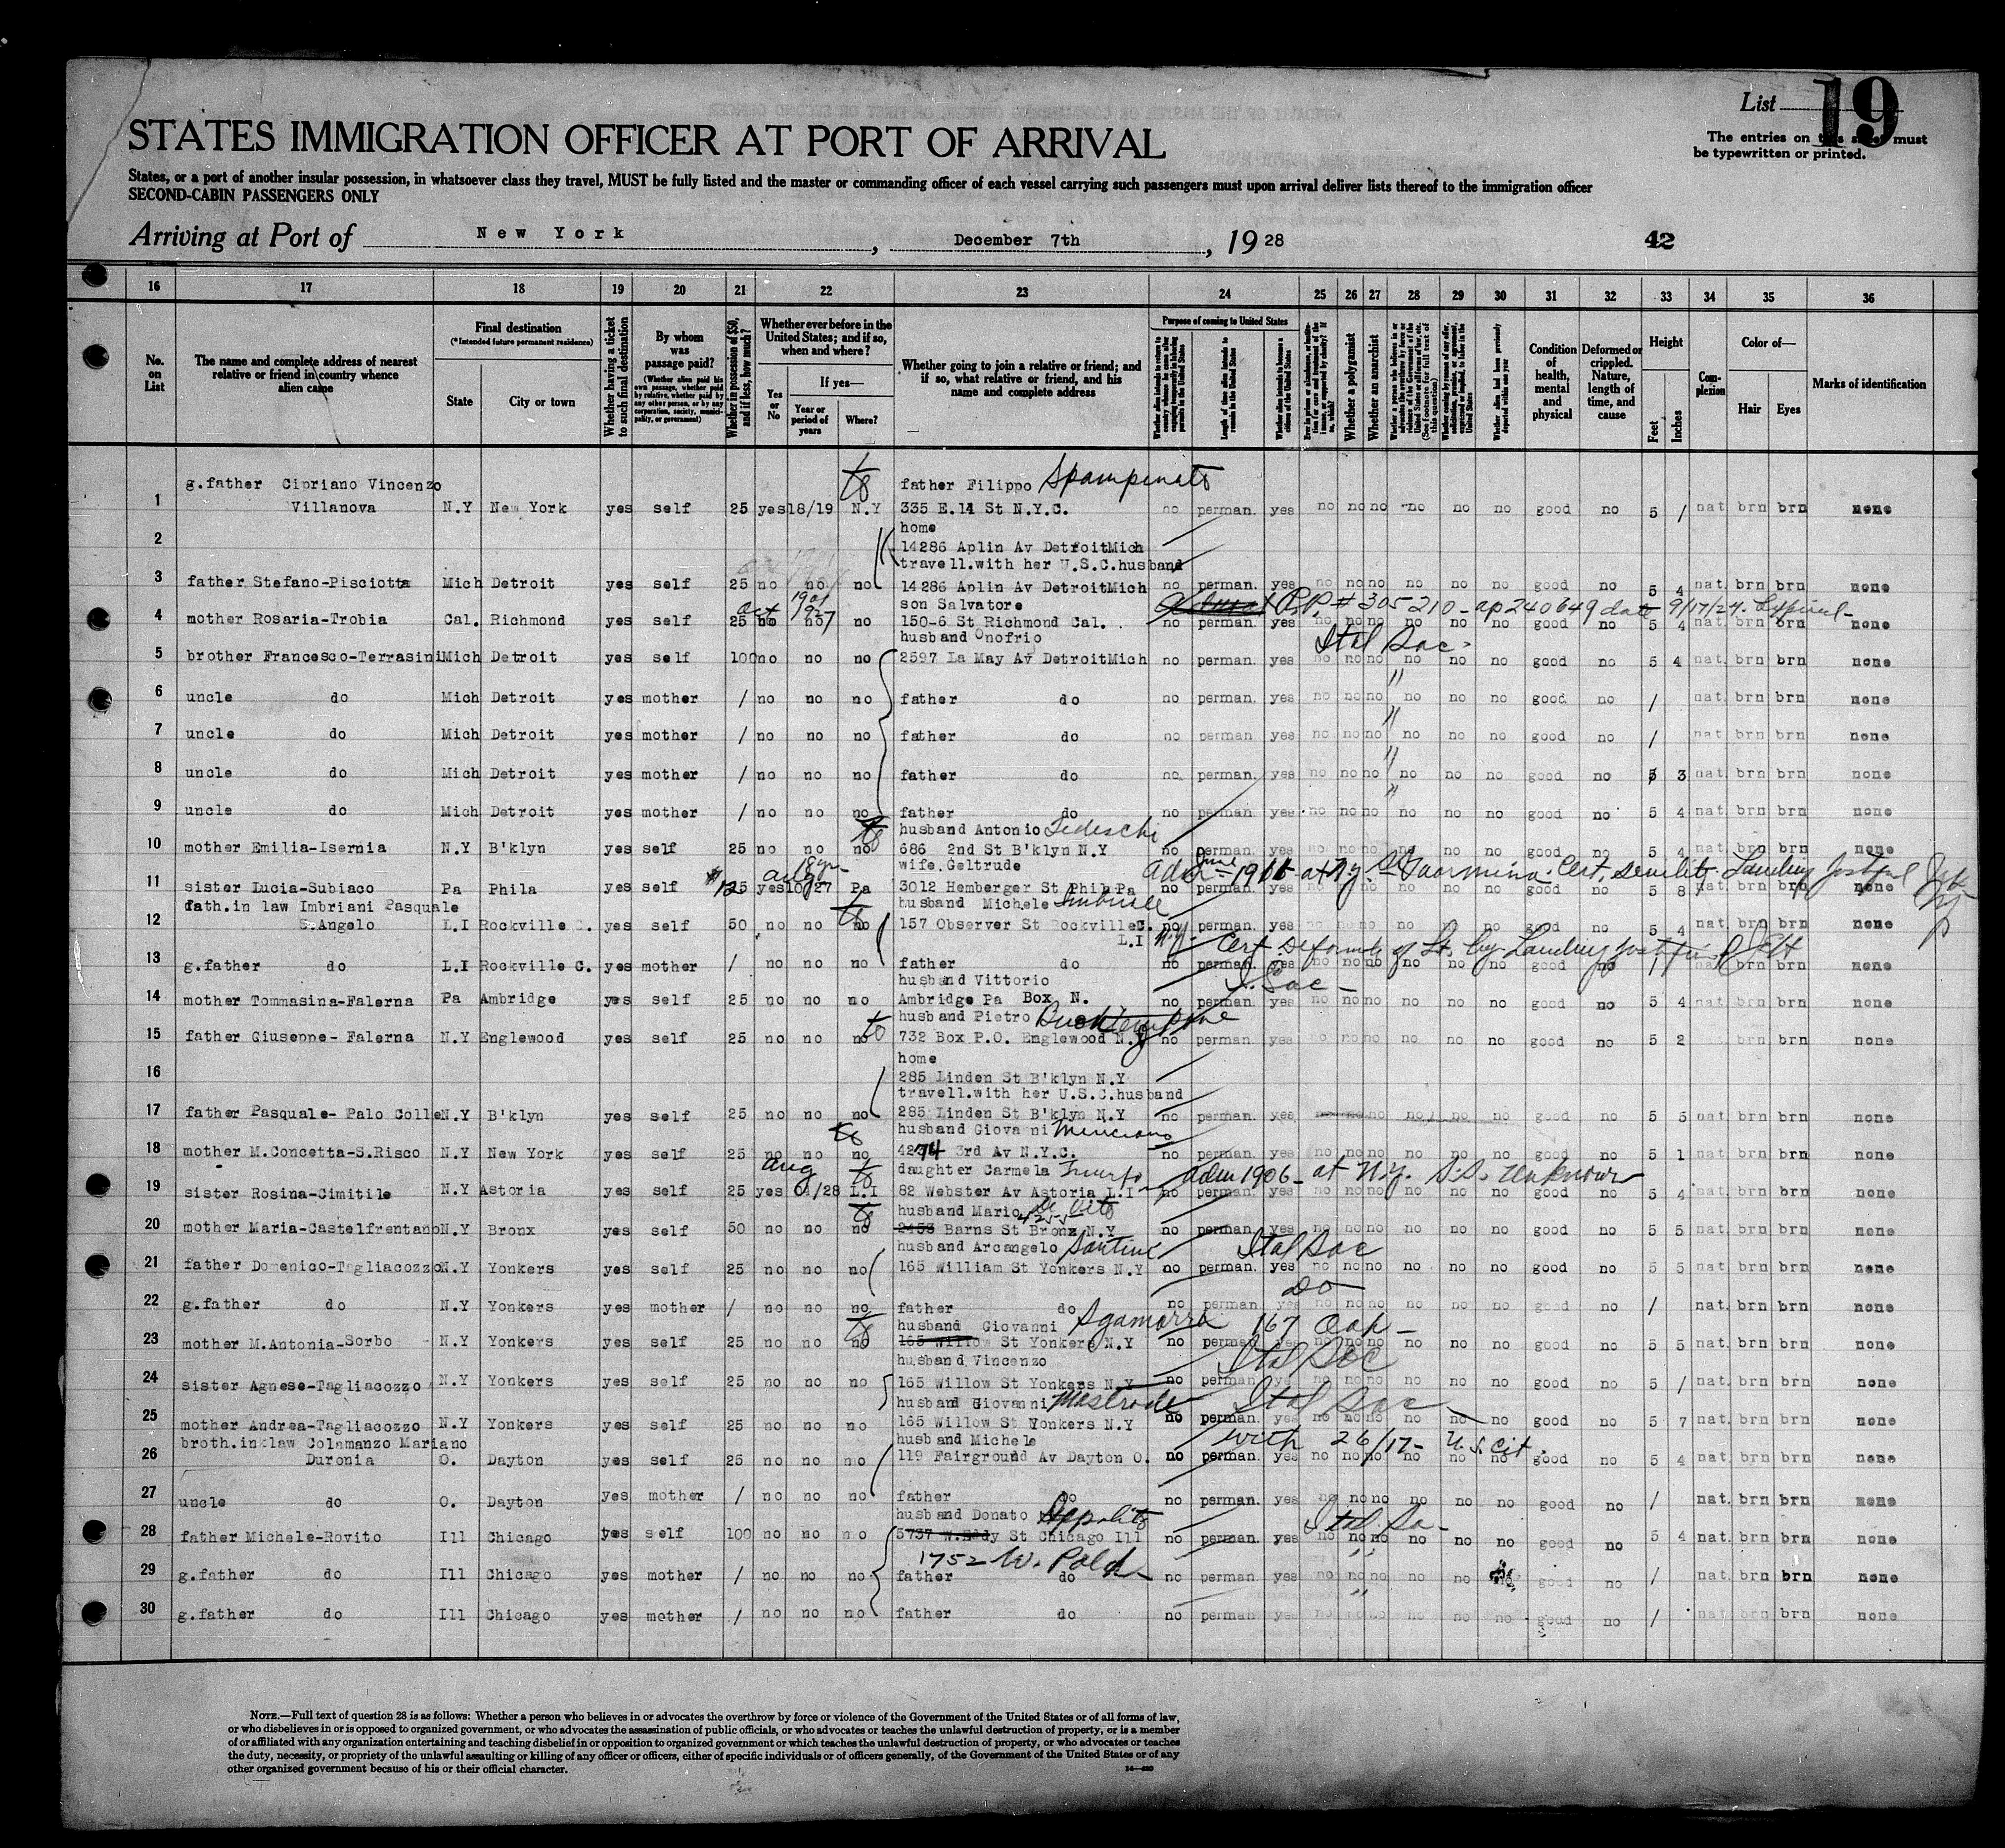 List 19
The entries on this sheet must
be typewritten or printed.
STATES IMMIGRATION OFFICER AT PORT OF ARRIVAL
States, or a port of another insular possession, in whatsoever class they travel, MUST be fully listed and the master or commanding officer of each vessel carrying such passengers must upon arrival deliver lists thereof to the immigration officer
SECOND-CABIN PASSENGERS ONLY
Arriving at Port of New York, December 7th, 1928
42
16 17 18 19 20 21 22 23 24 25 26 27 28 29 30 31 32 33 34 35 36
No. on List
The name and complete address of nearest relative or friend in country whence alien came
Final destination (*Intended future permanent residence)
State
City or town
Whether having a ticket to such final destination
By whom was passage paid?
(Whether alien paid his own passage, whether paid by relative, whether paid by any other person, or by any corporation, society, municipality, or government)
Whether in possession of $50, and if less, how much?
Whether ever before in the United States; and if so, when and where?
Yes or No
If yes—
Year or period of years
Where?
Whether going to join a relative or friend; and if so, what relative or friend, and his name and complete address
Purpose of coming to United States
Length of time alien intends to remain in the United States
Whether alien intends to become a citizen of the United States
Whether a polygamist
Whether an anarchist
Condition of health, mental and physical
Deformed or crippled. Nature, length of time, and cause
Height
Feet
Inches
Complexion
Color of—
Hair
Eyes
Marks of identification
g.father Cipriano Vincenzo father Filippo Spampinato
1 Villanova N.Y New York yes self 25 yes 18/19 N.Y 335 E.14 St N.Y.C. no perman. yes no no no no no no good no 5 / nat. brn brn none
home
2 14286 Aplin Av DetroitMich
travell.with her U.S.C.husband
3 father Stefano-Pisciotta Mich Detroit yes self 25 no no no 14286 Aplin Av DetroitMich no perman. yes no no no no no no good no 5 4 nat. brn brn none
son Salvatore R.P. # 305210 - ap 240649 date 9/17/27.
4 mother Rosaria-Trobia Cal. Richmond yes self 25 no no no 150-6 St Richmond Cal. no perman. yes no no no no no no good no 5 4 nat. brn brn none
husband Onofrio Ital Soc.
5 brother Francesco-Terrasini Mich Detroit yes self 100 no no no 2597 La May Av DetroitMich no perman. yes no no no no no no good no 5 4 nat. brn brn none
6 uncle do Mich Detroit yes mother / no no no father do no perman. yes no no no no no no good no / nat. brn brn none
7 uncle do Mich Detroit yes mother / no no no father do no perman yes no no no no no no good no / nat brn brn none
8 uncle do Mich Detroit yes mother / no no no father do no perman. yes no no no no no no good no 5 3 nat. brn brn none
9 uncle do Mich Detroit yes mother / no no no father do no perman. yes no no no no no no good no 5 4 nat. brn brn none
husband Antonio Tedeschi
10 mother Emilia-Isernia N.Y B'klyn yes self 25 no no no 686 2nd St B'klyn N.Y no perman. yes no no no no no no good no 5 4 nat. brn brn none
wife.Geltrude
11 sister Lucia-Subiaco Pa Phila yes self 25 yes 10/27 Pa 3012 Hemberger St Phila Pa no perman. yes 5 8 nat brn brn none
fath.in law Imbriani Pasquale husband Michele
12 S.Angelo L.I Rockville C. yes self 50 no no no 157 Observer St RockvilleC. no perman. yes no no no no no no good no 5 4 nat. brn brn none
L.I
13 g.father do L.I Rockville C. yes mother / no no no father do no perman. yes no no no no no no good no / nat brn brn none
husband Vittorio
14 mother Tommasina-Falerna Pa Ambridge yes self 25 no no no Ambridge Pa Box N. no perman. yes no no no no no no good no 5 4 nat. brn brn none
husband Pietro
15 father Giuseppe- Falerna N.Y Englewood yes self 25 no no no 732 Box P.O. Englewood N.Y no perman. yes no no no no no no good no 5 2 brn brn none
home
16 285 Linden St B'klyn N.Y
travell.with her U.S.C.husband
17 father Pasquale- Palo Colle N.Y B'klyn yes self 25 no no no 285 Linden St B'klyn N.Y no perman. yes no no no no no no good no 5 5 nat brn brn none
husband Giovanni
18 mother M.Concetta-S.Risco N.Y New York yes self 25 no no no 4274 3rd Av N.Y.C. no perman. yes no no no no no no good no 5 1 nat. brn brn none
daughter Carmela adm 1906 - at N.Y. S.S. unknown
19 sister Rosina-Cimitile N.Y Astoria yes self 25 yes 01/28 L.I 82 Webster Av Astoria L.I no perman. yes no no no no no no good no 5 4 nat. brn brn none
husband Mario De Vito
20 mother Maria-Castelfrentano N.Y Bronx yes self 50 no no no 2453 Barns St Bronx N.Y no perman. yes no no no no no no good no 5 5 nat. brn brn none
husband Arcangelo Santini Ital Soc
21 father Domenico-Tagliacozzo N.Y Yonkers yes self 25 no no no 165 William St Yonkers N.Y no perman. yes no no no no no no good no 5 5 nat brn brn none
do
22 g.father do N.Y Yonkers yes mother / no no no father do no perman yes no no no no no no good no / nat. brn brn none
husband Giovanni Sgamarra 167 Oak -
23 mother M.Antonia-Sorbo N.Y Yonkers yes self 25 no no no 165 Willow St Yonkers N.Y no perman yes no no no no no no good no 5 5 nat. brn brn none
husband Vincenzo Ital Soc
24 sister Agnese-Tagliacozzo N.Y Yonkers yes self 25 no no no 165 Willow St Yonkers N.Y no perman yes no no no no no no good no 5 / nat. brn brn none
husband Giovanni Ital Soc
25 mother Andrea-Tagliacozzo N.Y Yonkers yes self 25 no no no 165 Willow St Yonkers N.Y no perman. yes no no no no no no good no 5 7 nat. brn brn none
broth.inklaw Colamanzo Mariano husband Michele with 26/17- U.S. Cit.
26 Duronia O. Dayton yes self 25 no no no 119 Fairground Av Dayton O. no perman. yes no no no no no no good no 5 4 nat. brn brn none
27 uncle do O. Dayton yes mother / no no no father do no perman. yes no no no no no no good no / nat. brn brn none
husband Donato Ital So-
28 father Michele-Rovito Ill Chicago yes self 100 no no no 5737 W.Eddy St Chicago Ill no perman. yes no no no no no no good no 5 4 nat. brn brn none
1752 W. Polk
29 g.father do Ill Chicago yes mother / no no no father do no perman. yes no no no no no no good no / nat. brn brn none
30 g.father do Ill Chicago yes mother / no no no father do no perman yes no no no no no no good no / nat brn brn none
NOTE.—Full text of question 28 is as follows: Whether a person who believes in or advocates the overthrow by force or violence of the Government of the United States or of all forms of law,
or who disbelieves in or is opposed to organized government, or who advocates the assassination of public officials, or who advocates or teaches the unlawful destruction of property, or is a member
of or affiliated with any organization entertaining and teaching disbelief in or opposition to organized government or which teaches the unlawful destruction of property, or who advocates or teaches
the duty, necessity, or propriety of the unlawful assaulting or killing of any officer or officers, either of specific individuals or of officers generally, of the Government of the United States or of any
other organized government because of his or their official character.